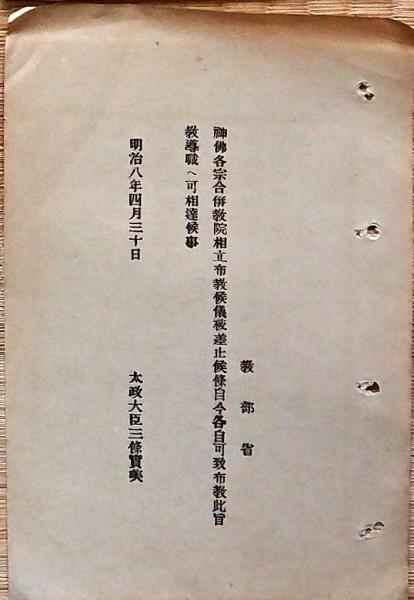 教部省
神佛各宗合併教院相立布教候儀被差止候條自今各自可致布教此旨
教導職ヘ可相達候事
明治八年四月三十日
太政大臣三條實美